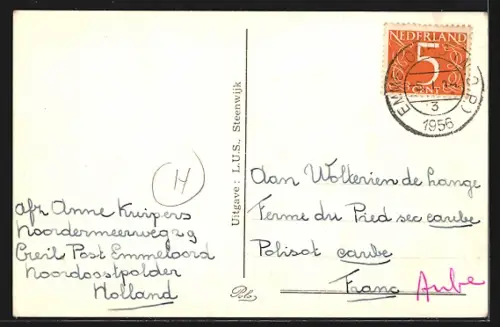 NEDERLAND
5
CENT
3
1956
Uitgave: L.U.S. Steenwijk
H
Aan Wolterien de Lange
Ferme du Pied sec caube
Polisot caube
Franc Aube
afz Anne Kuipers
Noordermeerweg 29
Creil Post Emmeloord
Noordoostpolder
Holland
Polo